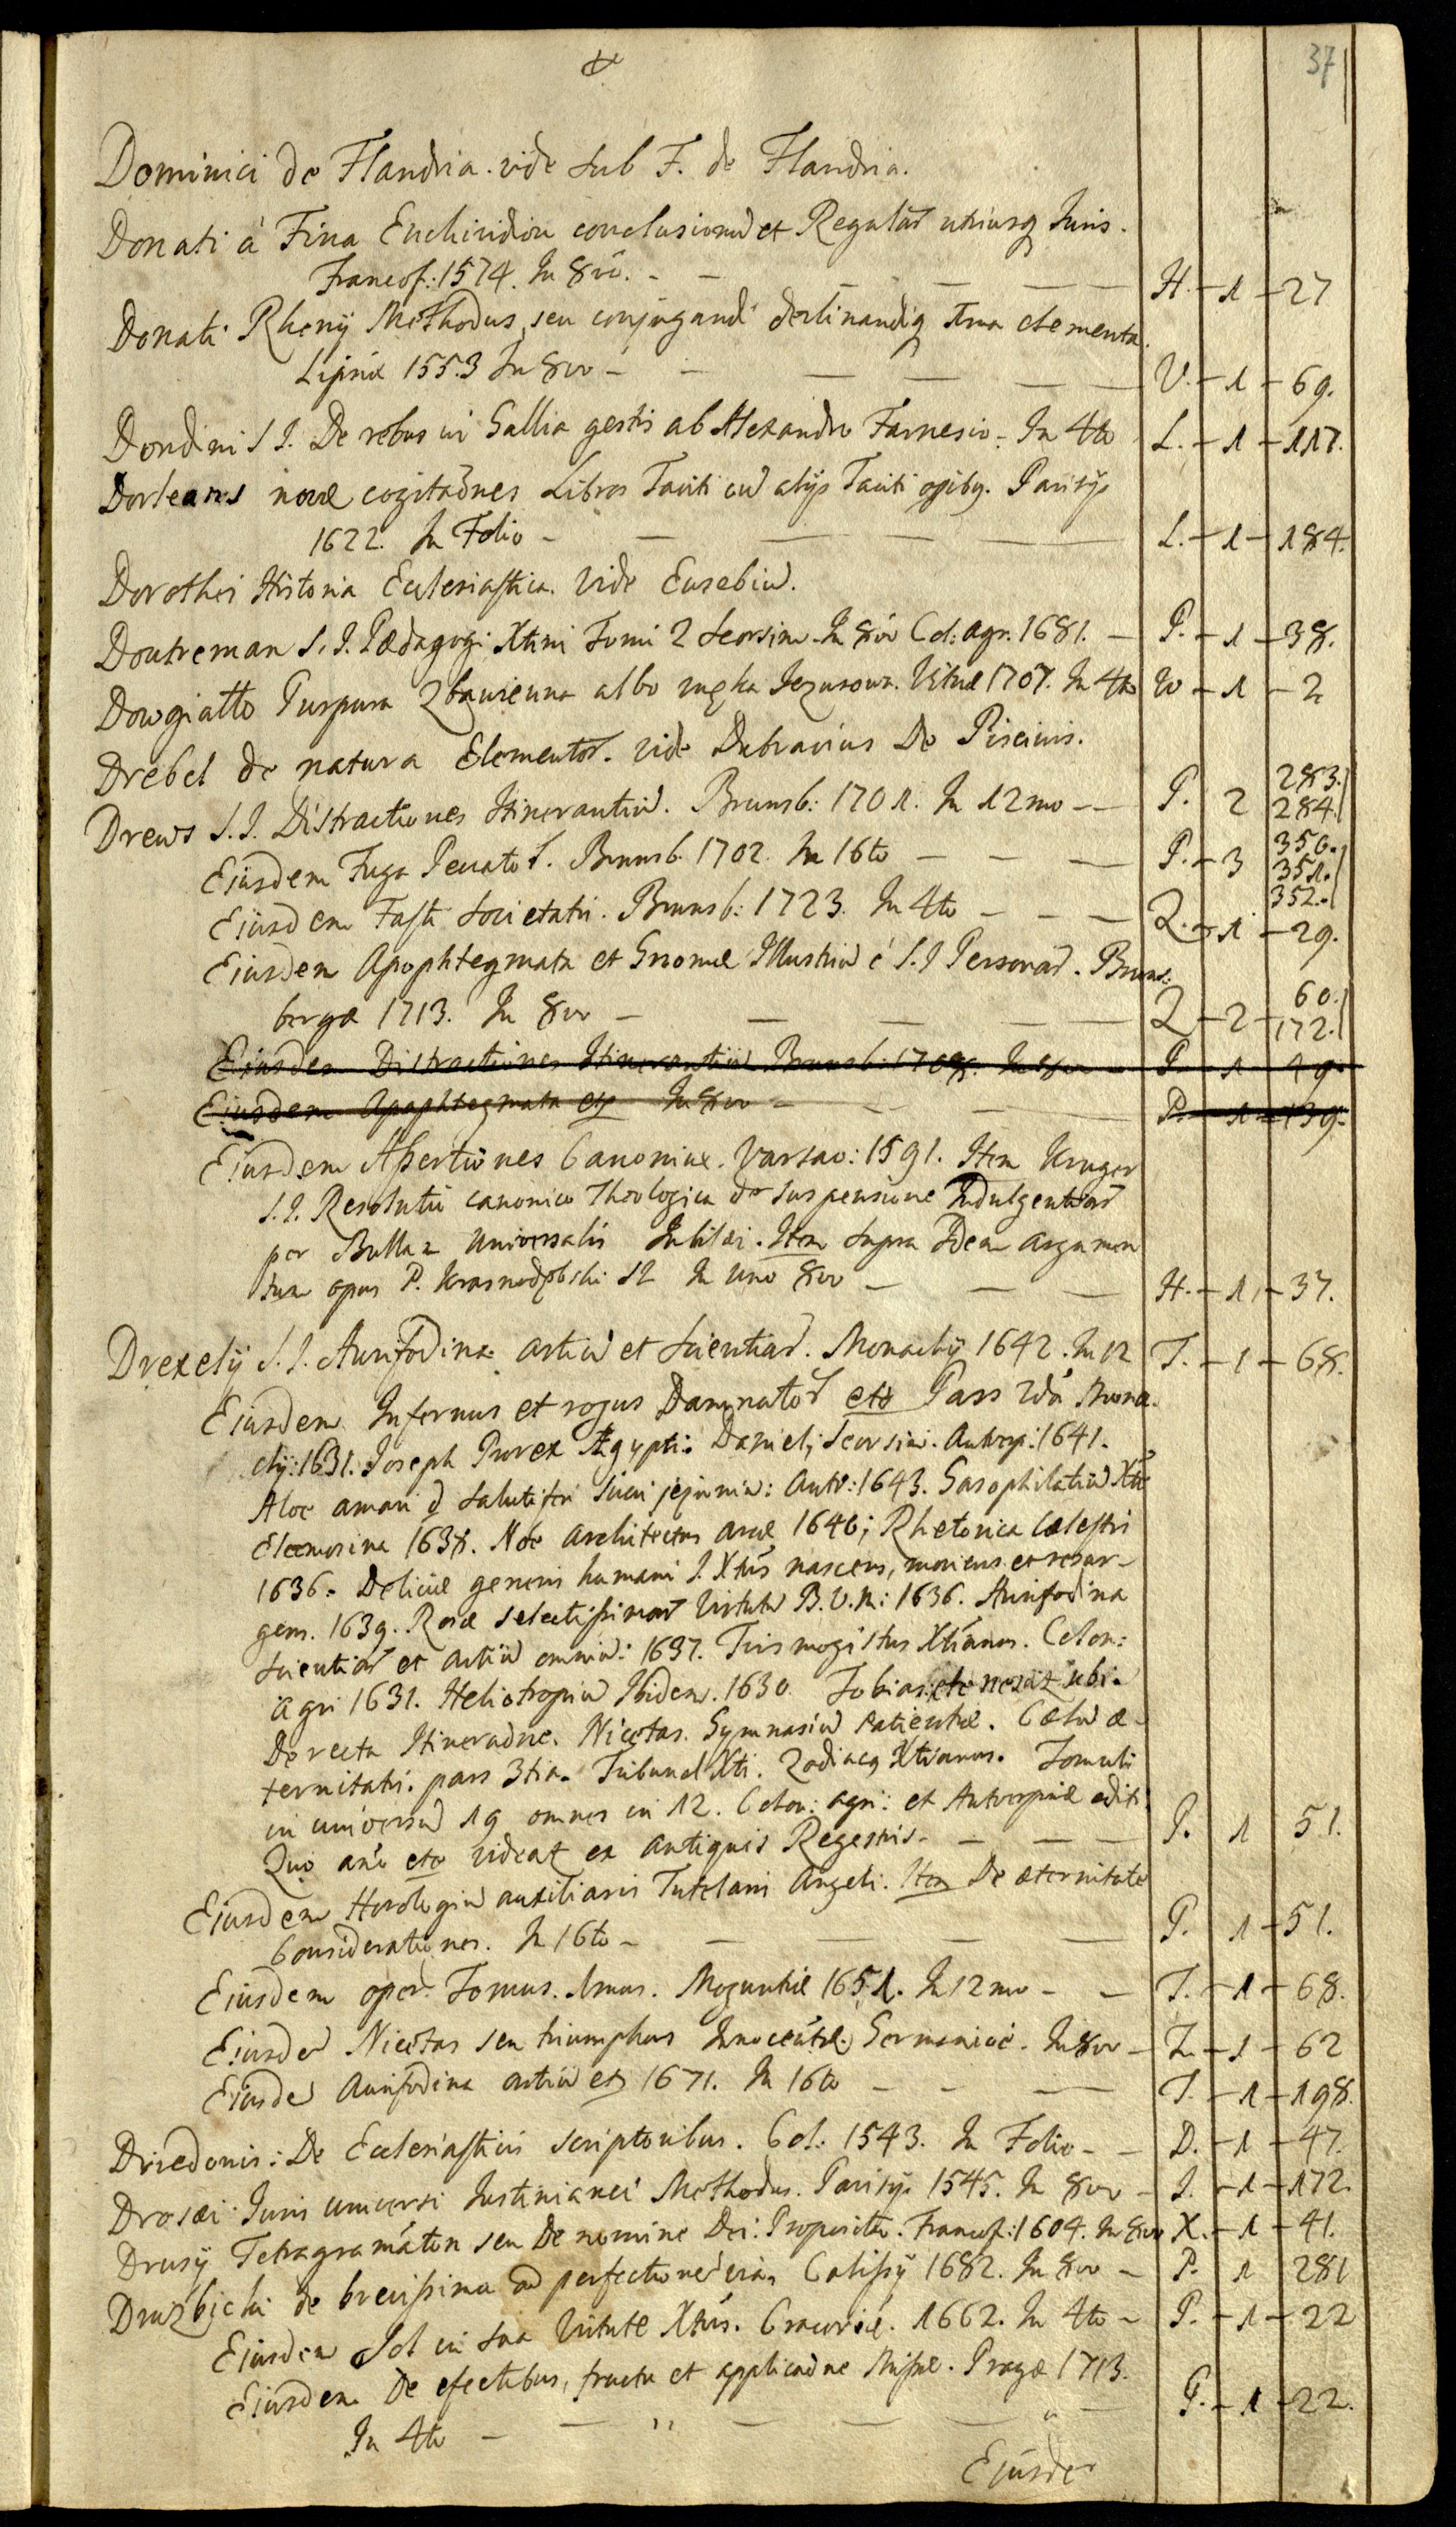 37
Dominici de Flandria. vide sub F. de Flandria.
Donati á Fina Enchiridion conclusionũ et Regulař utriusq Juris.
Francof: 1574. In 8vo. - - - - - H. - 1 - 27
Donati Rhenÿ Methodus, seu conjugandi declinandiq elementa.
Lipsiæ 1553 In 8vo - - - - - V. - 1 - 69.
Dondini S J. De rebus in Gallia gestis ab Alexandro Farnesio - In 4to L. - 1 - 117.
Dorleans novæ cogitaõnes Libros Taciti cũ alijs Taciti Parisijs
1622. In Folio - - - - - L. - 1 - 184.
Dorothei Historia Ecclesiastica. Vide Eusebiũ.
Doutreman S. J. Pædagogi Xtini Tomi 2 seorsim. In 8vo Col: agr. 1681. - P. - 1 - 38.
Dowgiałło Purpura Zbawienna albo męka Jezusowa. Vilnæ 1707. In 4to W - 1 - 2
Drebel de natura Elementoř. vide Dubravius De Piscinis.
Drews S. J. Distractiones Itinerantiũ. Brunsb: 1701. In 12mo - - P. 2 283. 284.
Ejusdem Fuga Peccatoř. Brunsb. 1702. In 16to - - - P. - 3 350. 351. 352.
Ejusdem Fasti Societatis. Brunsb: 1723. In 4to - - - Z. - 1 - 29.
Ejusdem Apophtegmata et Gnomæ Illustriũ é S. J Personař. Bruns:
bergæ 1713. In 8vo - - - - Z - 2 - 60. 172.
Ejusdem Distractiones Itinerantiũ Brunsb: 1708. In 8vo - P. 1 49.
Ejusdem Apophtegmata etc In 8vo - - - - P. - 1 - 139.
Ejusdem Assertiones Canonicæ. Varsav: 1591. Item Kruger
S. J. Resolutio canonico Theologica de suspensione Indulgentiař
per Bullam Universalis Jubilæi. Item supra Idem argumen
tum opus P. Krasnodębski SJ In uno 8vo - - - H. - 1 - 37.
Drexelÿ S. J. Aurifodina artiũ et scientiař. Monachÿ 1642. In 12 T. - 1 - 68.
Ejusdem Infernus et rogus Damnatoř etc Pars 2da Mona
chÿ: 1631. Joseph Prorex Ægypti: Daniel; seorsim. Antverp: 1641.
Aloe amari salutiferi succi jejuniũ: Antv: 1643. Gasophilatiũ Xti
Eleemosina 1638. Noe architectus arcæ 1646; Rhetorica cælestis
1636. Deliciæ generis humani J. Xtus nascens, moriens et resur-
gens. 1639. Rosæ selectissimař Virtutũ B. V. M: 1636. Aurifodina
scientiař et artiũ omniũ: 1637. Trismegistus Xtianus. Colon:
agri 1631. Heliotropiũ Ibidem. 1630. Tobias ubi.
De recta Itineraõne. Nicetas. Gymnasiũ Patientiæ. Cælũ æ-
ternitatis. pars 3tia. Tribunal Xti. Zodiacq Xtianus. Tomuli
in universũ 19 omnes in 12. Colon: agri: et Antverpiæ editi.
Quo año etc videat ex antiquis Regestris - - - - P. 1 51.
Ejusdem Horologiũ auxiliaris Tutelaris Angeli. Item De æternitate
Considerationes. In 16to - - - - - P. 1 - 51.
Ejusdem oper. Tomus. 1mus. Moguntiæ 1651. In 12mo - - T. - 1 - 68.
Ejusdẽ Nicetas seu triumphus Innocentiæ. Germanicé. In 8vo - Z. - 1 - 62
Ejusdẽ Aurifodina artiũ etc 1671. In 16to - - - T. - 1 - 198.
Driedonis: De Ecclesiasticis scriptoribus. Col: 1543. In Folio - - D. - 1 - 47.
Drosæi Juris universi Justinianei Methodus. Parisijs 1545. In 8vo - J. - 1 - 172.
Drusÿ Tetragramáton seu De nomine Dei: Proprio. Francof: 1604. In 8vo X. - 1 - 41.
Druzbicki de brevissima ad perfectionẽ via. Calissÿ 1682. In 8vo - P. 1 281
Ejusdem Sol in sua Virtute Xtus. Cracoviæ. 1662. In 4to - P. - 1 - 22
Ejusdem De efectibus, fructu et applicaõne Missæ. Pragæ 1713.
In 4to - - - - - - P. - 1 - 22.
Ejusdẽ